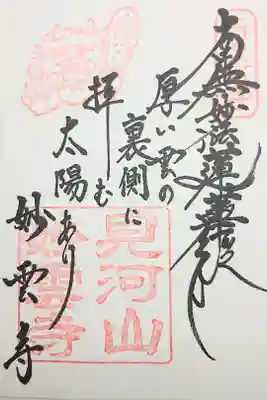 南無妙法蓮華経
厚い雲の
裏側に
拝む
太陽あり
妙雲寺
見河山
妙雲寺